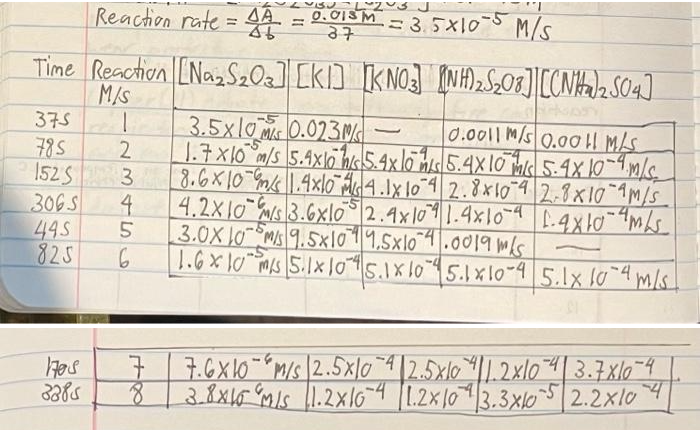 Reaction rate = ΔA/Δt = 0.013M/37 = 3.5x10⁻⁵ M/s
Time Reaction [Na₂S₂O₃] [KI] [KNO₃] [(NH)₂S₂O8] [(NH₄)₂SO4]
M/s
37s 1 3.5x10⁻⁵M/s 0.023M/s — 0.0011 M/s 0.0011 M/s
78s 2 1.7x10⁻⁵m/s 5.4x10⁻⁴m/s 5.4x10⁻⁴m/s 5.4x10⁻⁴m/s 5.4x10⁻⁴m/s
152s 3 8.6x10⁻⁶m/s 1.4x10⁻⁴m/s 4.1x10⁻⁴ 2.8x10⁻⁴ 2.8x10⁻⁴m/s
306s 4 4.2x10⁻⁶m/s 3.6x10⁻⁵ 2.4x10⁻⁴ 1.4x10⁻⁴ 1.4x10⁻⁴m/s
44s 5 3.0x10⁻⁵m/s 9.5x10⁻⁴ 9.5x10⁻⁴ .0019 m/s —
82s 6 1.6x10⁻⁵m/s 5.1x10⁻⁴ 5.1x10⁻⁴ 5.1x10⁻⁴ 5.1x10⁻⁴m/s
170s 7 7.6x10⁻⁶m/s 2.5x10⁻⁴ 2.5x10⁻⁴ 1.2x10⁻⁴ 3.7x10⁻⁴
338s 8 3.8x10⁻⁶m/s 1.2x10⁻⁴ 1.2x10⁻⁴ 3.3x10⁻⁵ 2.2x10⁻⁴